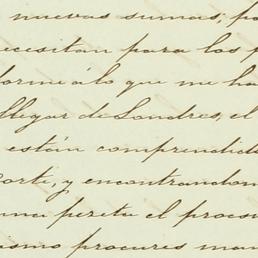 nuevas sumas, po
ecesitan para los p
forme á lo que me ha
llegar de Londres, el
están comprendid
orte, y encontrandom
una
el
ismo procures man